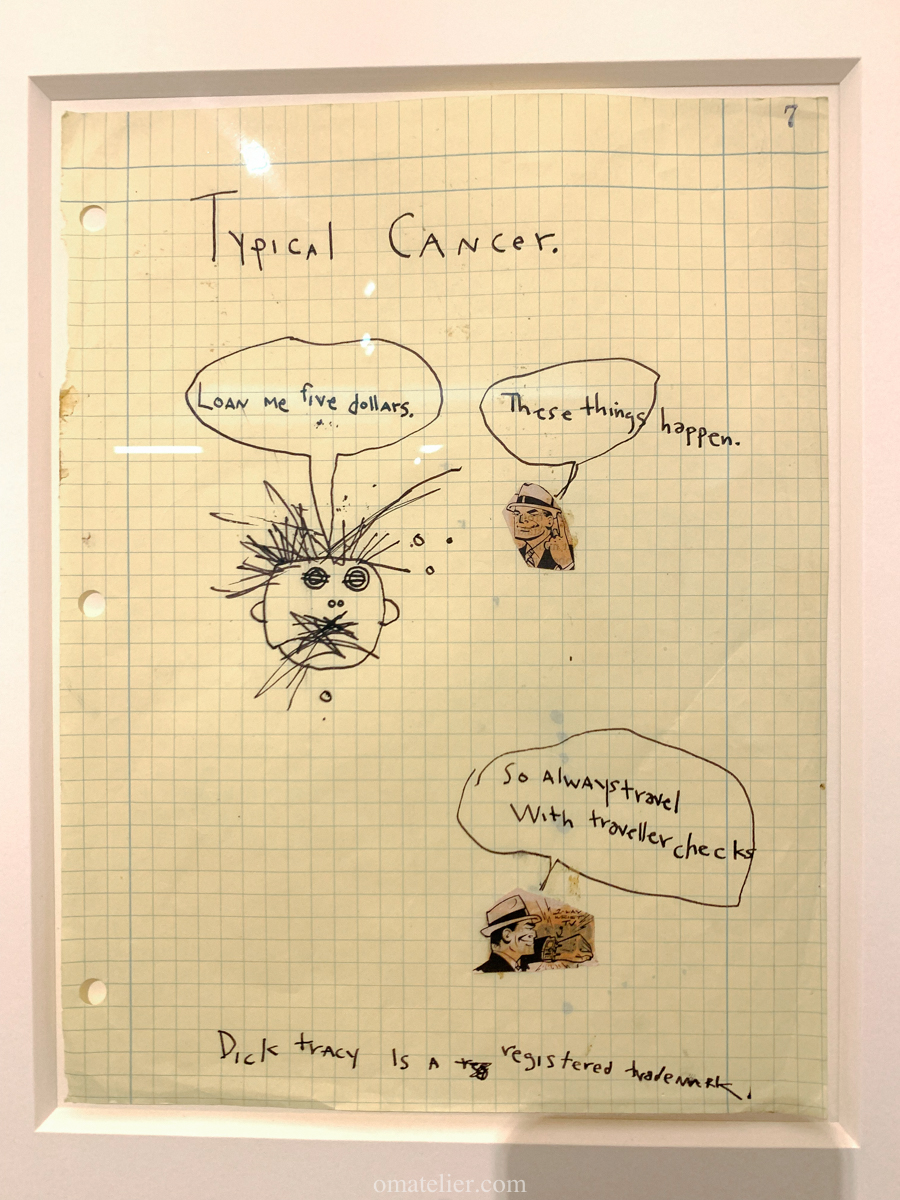 7
Typical Cancer.
Loan me five dollars.
These things happen.
So always travel
With traveller checks
Dick tracy is a registered trademark.
omatelier.com